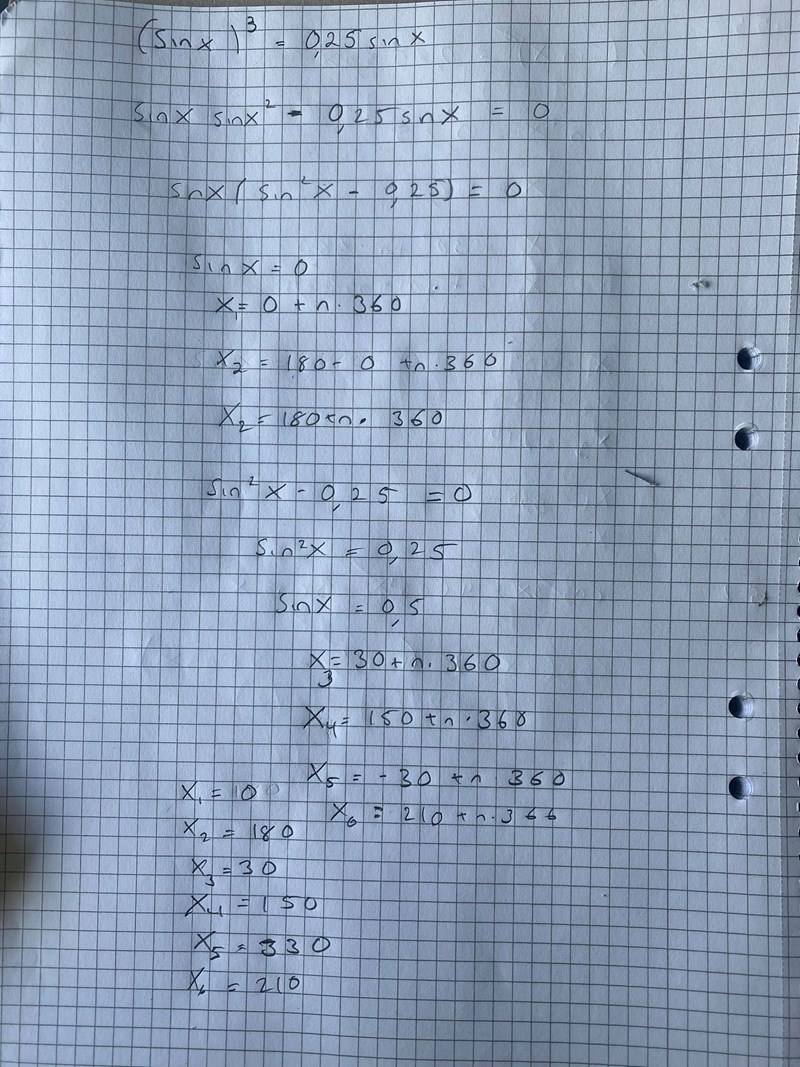 (sinx)³ = 0,25 sinx
sinx sinx² - 0,25 snx = 0
snx (sin²x - 0,25) = 0
sinx = 0
x₁ = 0 + n · 360
x₂ = 180 - 0 + n · 360
x₂ = 180 + n · 360
sin²x - 0,25 = 0
sin²x = 0,25
sinx = 0,5
x₃ = 30 + n · 360
x₄ = 150 + n · 360
x₅ = -30 + n 360
x₆ = 210 + n · 366
x₁ = 10
x₂ = 180
x₃ = 30
x₄ = 150
x₅ = 330
x₆ = 210